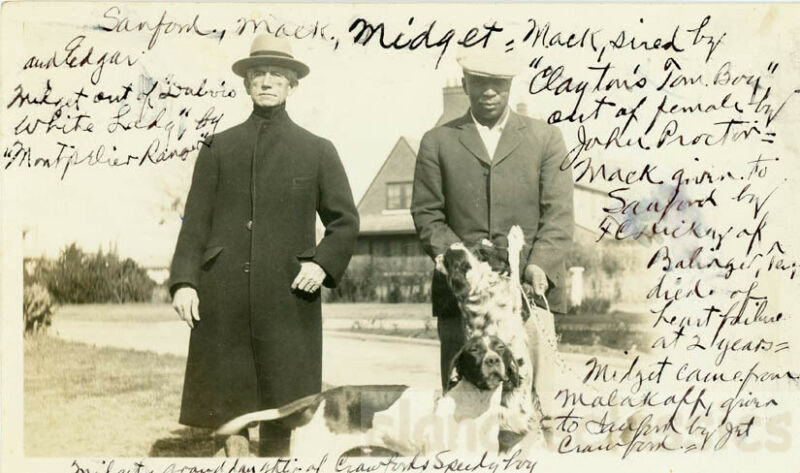 Sanford, Mack, Midget = Mack, sired by
and Edgar
"Clayton's Tom Boy"
out of female by
John Proctor =
Mack given to
Sanford by
of
Balinger, Tex,
died of
heart failure
at 2 years =
Midget out of
White Lady", by
"Montpelier Ranger"
Midget came from
Malakoff, given
to Sanford by Jet
Crawford. =
Midget, granddaughter of Crawford's Speedy boy